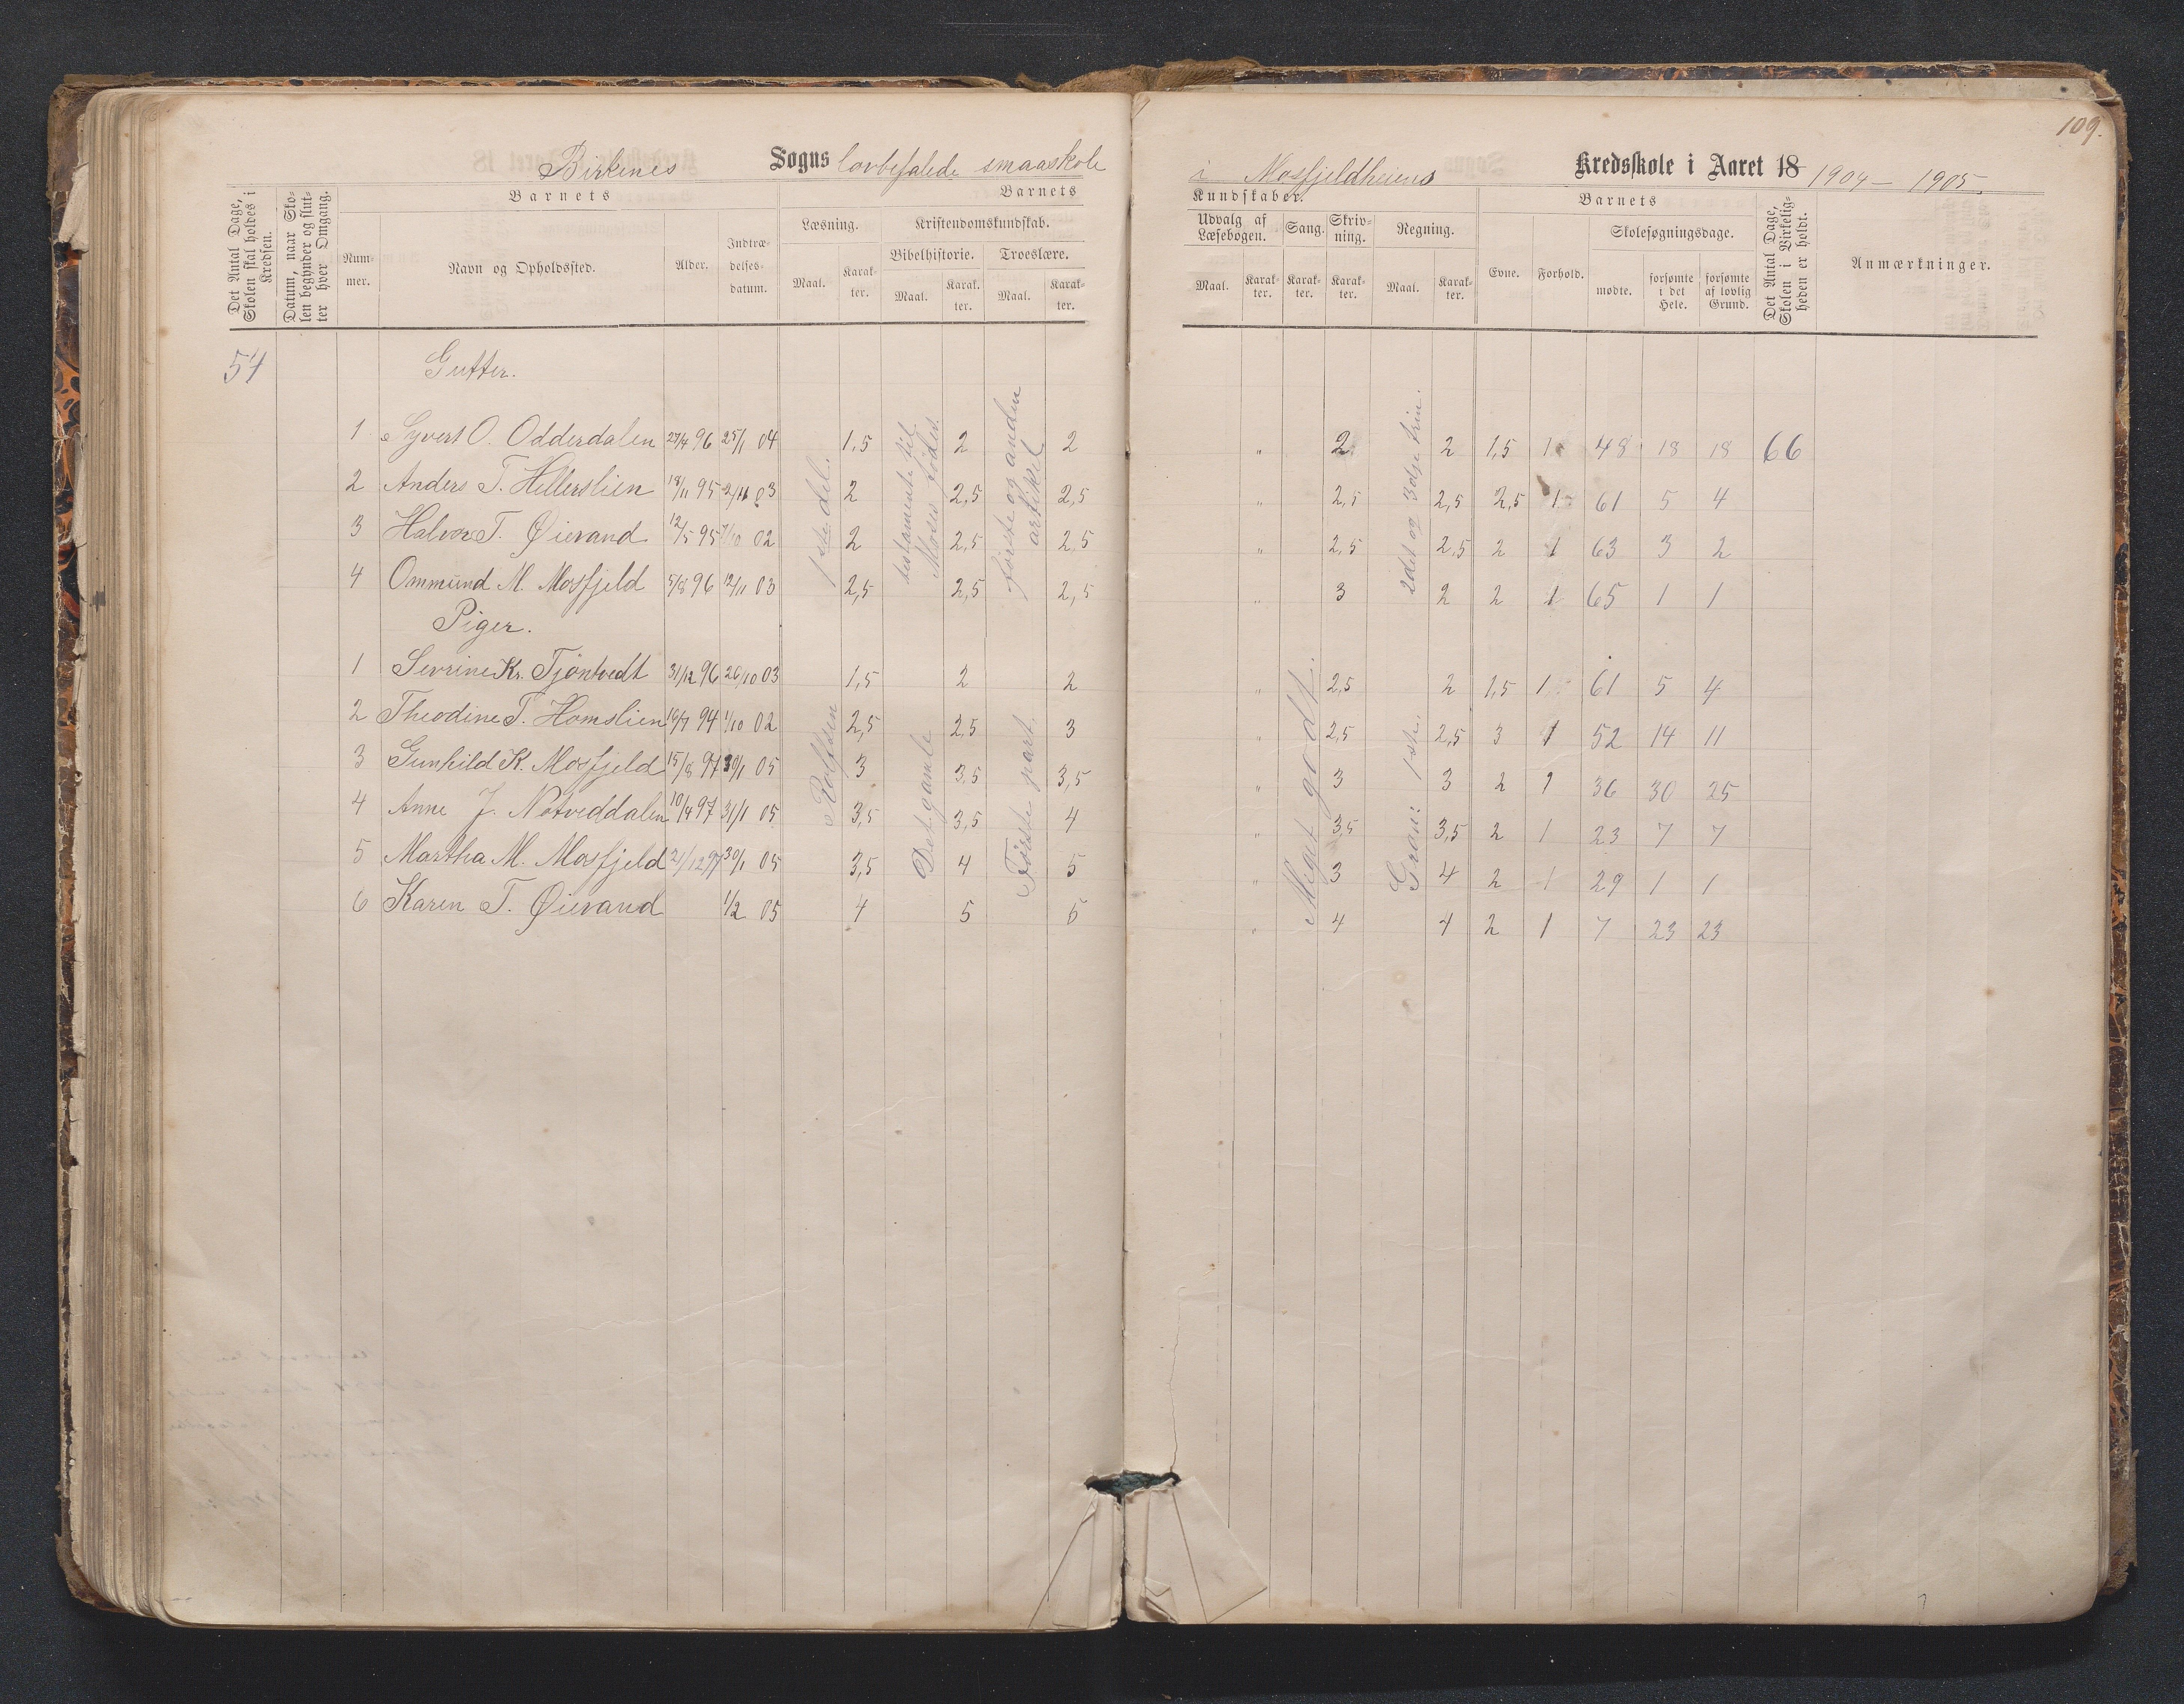 109.
Birkenes Sogns lovbefalede smaaskole i Mosfjeldheiens Kredsskole i Aaret 18 1904 — 1905.
Det Antal Dage, Skolen skal holdes i Kredsen.
Datum, naar Skolen begynder og slutter hver Omgang.
Barnets
Nummer.
Navn og Opholdssted.
Alder.
Indtrædelsesdatum.
Barnets
Læsning.
Maal.
Karakter.
Kristendomskundskab.
Bibelhistorie.
Maal.
Karakter.
Troeslære.
Maal.
Karakter.
Kundskaber.
Udvalg af Læsebogen.
Maal.
Karakter.
Sang.
Karakter.
Skrivning.
Karakter.
Regning.
Maal.
Karakter.
Barnets
Evne.
Forhold.
Skolesøgningsdage.
mødte.
forsømte i det Hele.
forsømte af lovlig Grund.
Det Antal Dage, Skolen i Virkeligheden er holdt.
Anmærkninger.
54
Gutter.
1 Syvert O. Odderdalen 27/4 96 25/1 04 1,5 2 2 " 2 2 1,5 1 48 18 18 66
2 Anders T. Hellerslien 18/11 95 2/11 03 2 2,5 2,5 " 2,5 2,5 2,5 1 61 5 4
3 Halvor T. Øievand 12/5 95 1/10 02 2 2,5 2,5 " 2,5 2,5 2 1 63 3 2
4 Ommund M. Mosfjeld 5/8 96 12/11 03 2,5 2,5 2,5 " 3 2 2 1 65 1 1
Piger.
1 Sevrine Kr. Tjöntvedt 31/12 96 26/10 03 1,5 2 2 " 2,5 2 1,5 1 61 5 4
2 Theodine T. Homslien 16/7 94 1/10 02 2,5 2,5 3 " 2,5 2,5 3 1 52 14 11
3 Gunhild K. Mosfjeld 15/8 97 30/1 05 3 3,5 3,5 " 3 3 2 1 36 30 25
4 Anne J. Notveddalen 10/4 97 31/1 05 3,5 3,5 4 " 3,5 3,5 2 1 23 7 7
5 Martha M. Mosfjeld 21/12 97 30/1 05 3,5 4 5 " 3 4 2 1 29 1 1
6 Karen T. Øievand 1/2 05 4 5 5 " 4 4 2 1 7 23 23
Rolfsen 1ste del.
Det gamle testamente til Moses fødes.
Første part. første og anden artikel
Meget godt.
Gran: 1ste. 2det og 3dje trin.